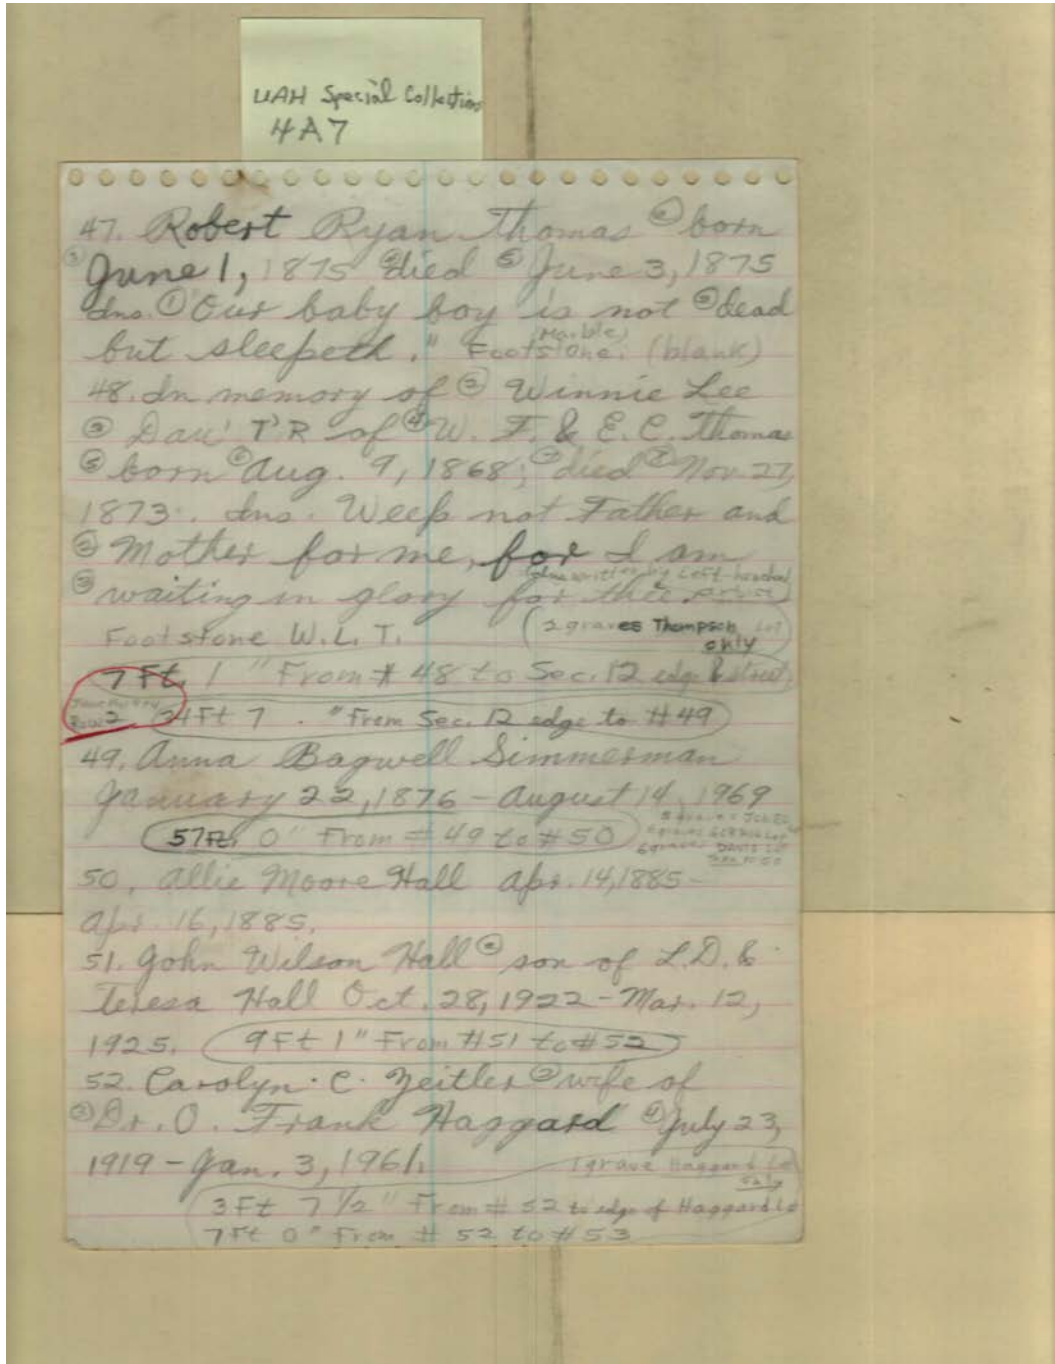 UAH Special Collections
4A7
47. Robert Ryan Thomas ② born
③ June 1, 1875 ④ died ⑤ June 3, 1875
Ins. ① "Our baby boy is not ② dead
but sleepeth." Footstone: (blank)
(Marble)
48. In memory of ② Winnie Lee
③ Dau' T'R of ④ W. F. & E. C. Thomas
⑤ born ⑥ Aug. 9, 1868; ⑦ died ⑧ Nov 27,
1873. Ins. Weep not Father and
② Mother for me, for I am
③ waiting in glory for thee.
by Left-handed
Footstone W. L. T.
(2 graves Thompson Lot
only)
7 Ft. 1 " From # 48 to Sec. 12 edge & street,
Row 2
24 Ft 7 . " From Sec. 12 edge to # 49
49. Anna Bagwell Simmerman
January 22, 1876 - August 14, 1969
57 Ft. 0" From # 49 to # 50
50. Allie Moore Hall Apr. 14, 1885 -
Apr. 16, 1885.
51. John Wilson Hall ② son of L. D. &
Teresa Hall Oct. 28, 1922 - Mar. 12,
1925.
9 Ft 1" From # 51 to # 52
52. Carolyn . C . Zeitler ② wife of
③ Dr. O. Frank Haggard ④ July 23,
1919 - Jan. 3, 1961.
1 grave Haggard Lot
3 Ft 7 1/2 " From # 52 to edge of Haggard Lot
7 Ft 0 " From # 52 to # 53